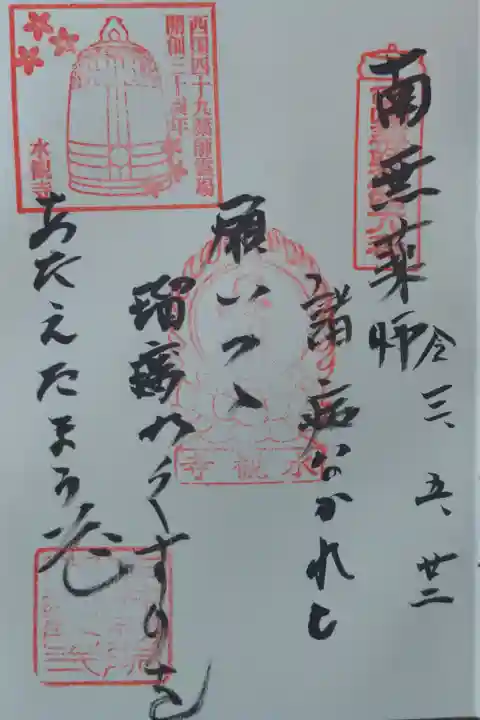 南無薬師
令三、五、廿二
諸病なかれと
願いつゝ
瑠璃のくすりを
あたえたまう
西国四十九薬師霊場
開創三十周年
水観寺
水観寺